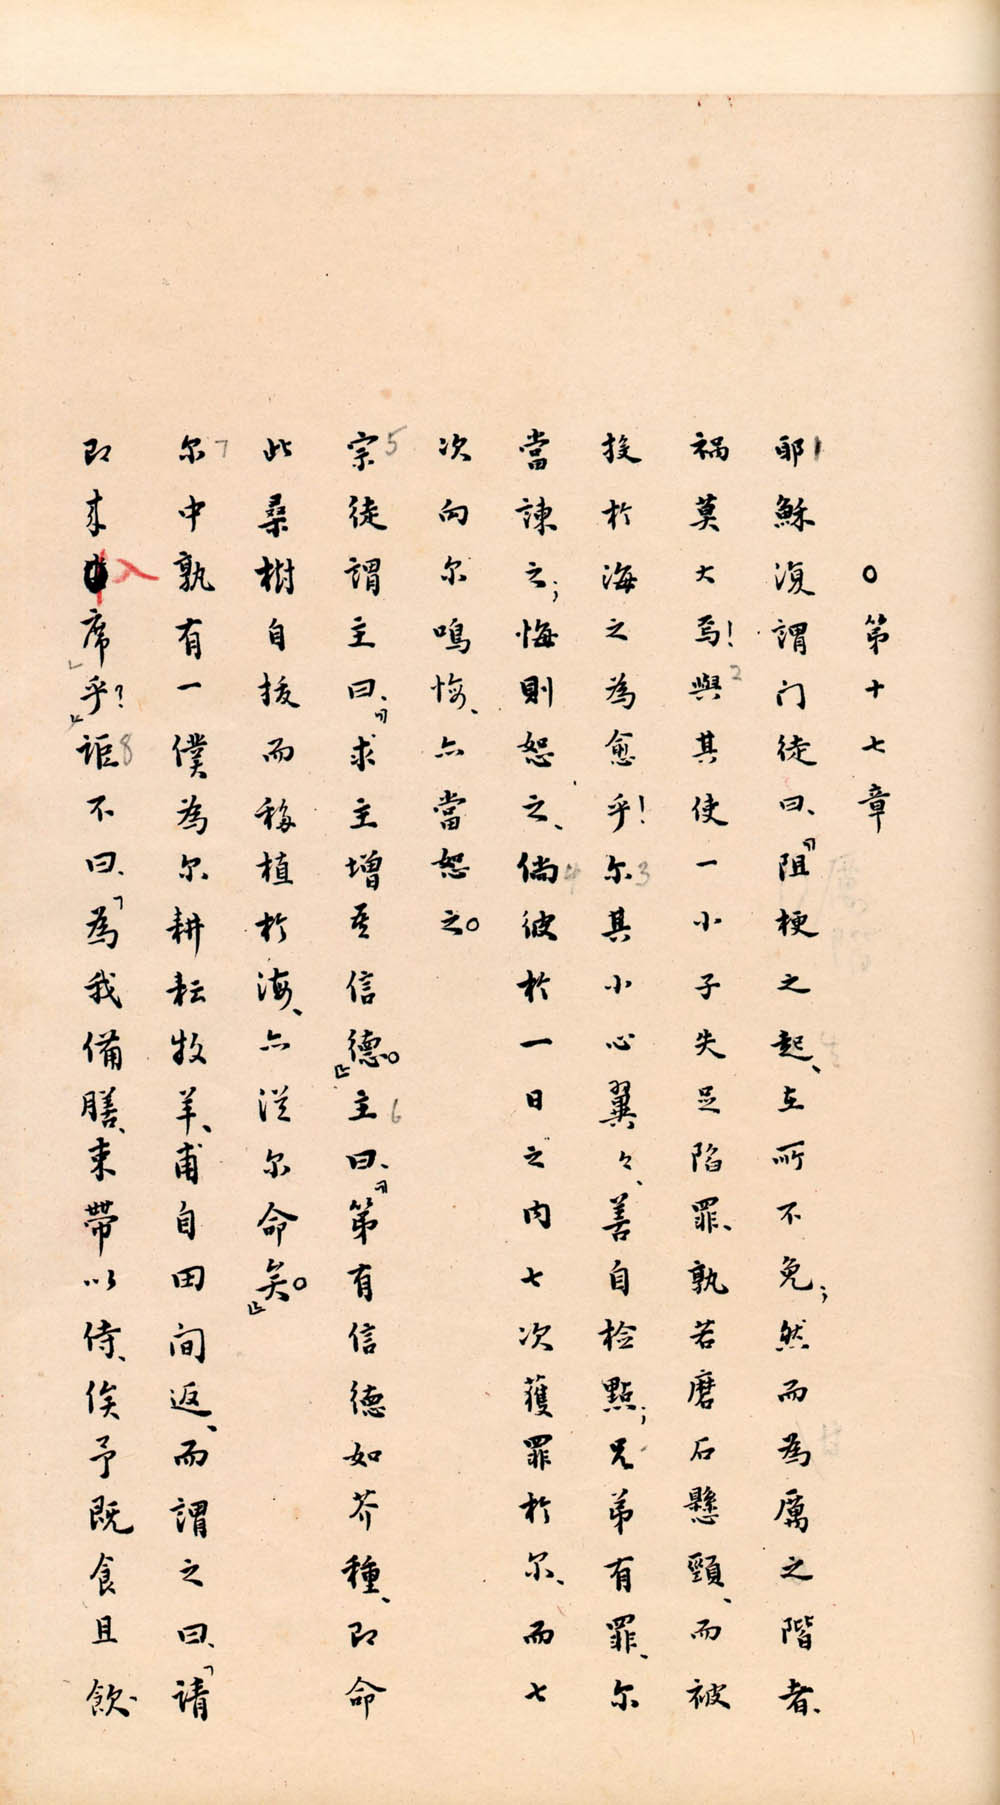 ○第十七章
耶穌復謂门徒曰、『阻梗之起、在所不免；然而為厲之階者、
禍莫大焉！與其使一小子失足陷罪、孰若磨石懸頸、而被
投於海之為愈乎！尔其小心翼々、善自檢點；兄弟有罪、尔
當諫之；悔則恕之、倘彼於一日之内七次獲罪於尔、而七
次向尔鳴悔、亦當恕之。
宗徒謂主曰、『求主增吾信德。』主曰、『第有信德如芥種、即命
此桑樹自拔而移植於海、亦從尔命矣。』
尔中孰有一僕為尔耕耘牧羊、甫自田间返、而謂之曰、「請
即来入席」乎？詎不曰、「為我備膳、束帶以侍、俟予既食且飲、
1
2
3
4
5
6
7
8